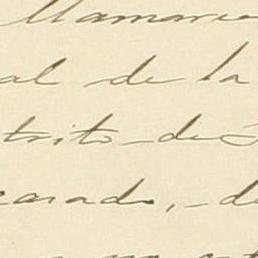 llamarse
al - de la
trito - de S
casado, - de